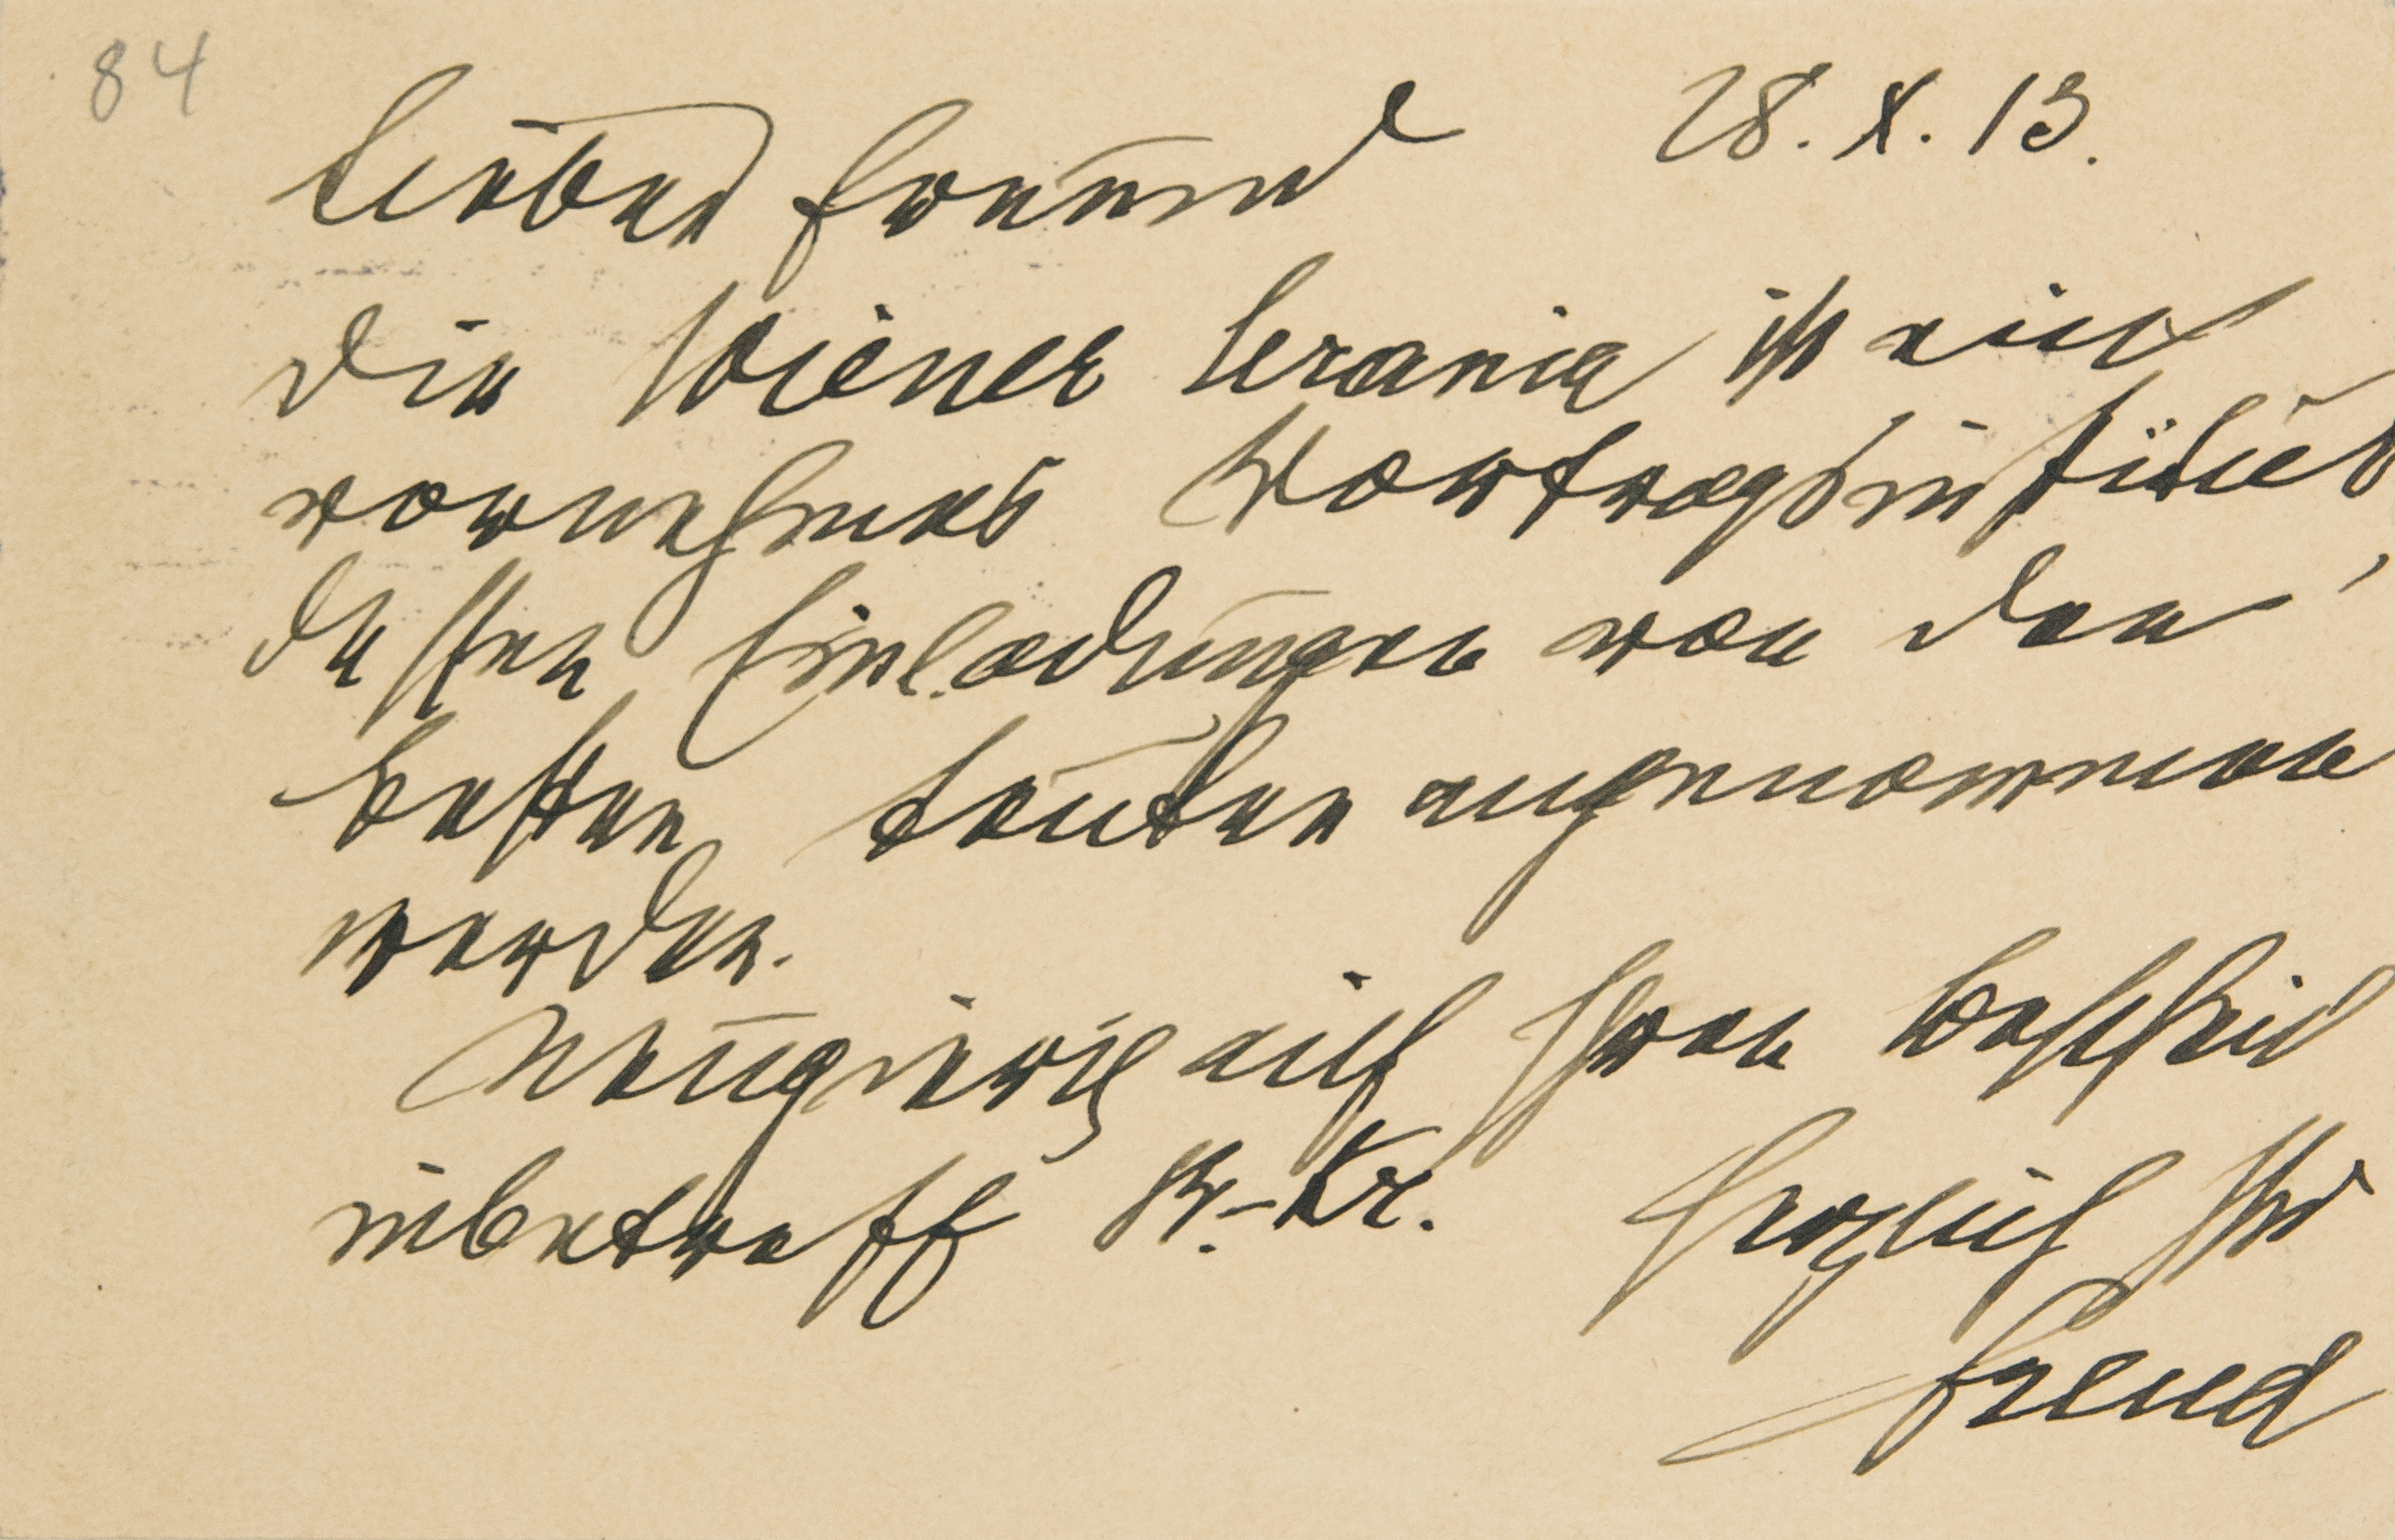 84
28. X. 13.
Lieber Freund
Die Wiener Urania ist ein
vornehmes Vortragsinstitut,
dessen Einladungen von den
besten Leuten angenommen
werden.
Neugierig auf Ihren Bescheid
inbetreff St.-Kr. Herzlich Ihr
Freud